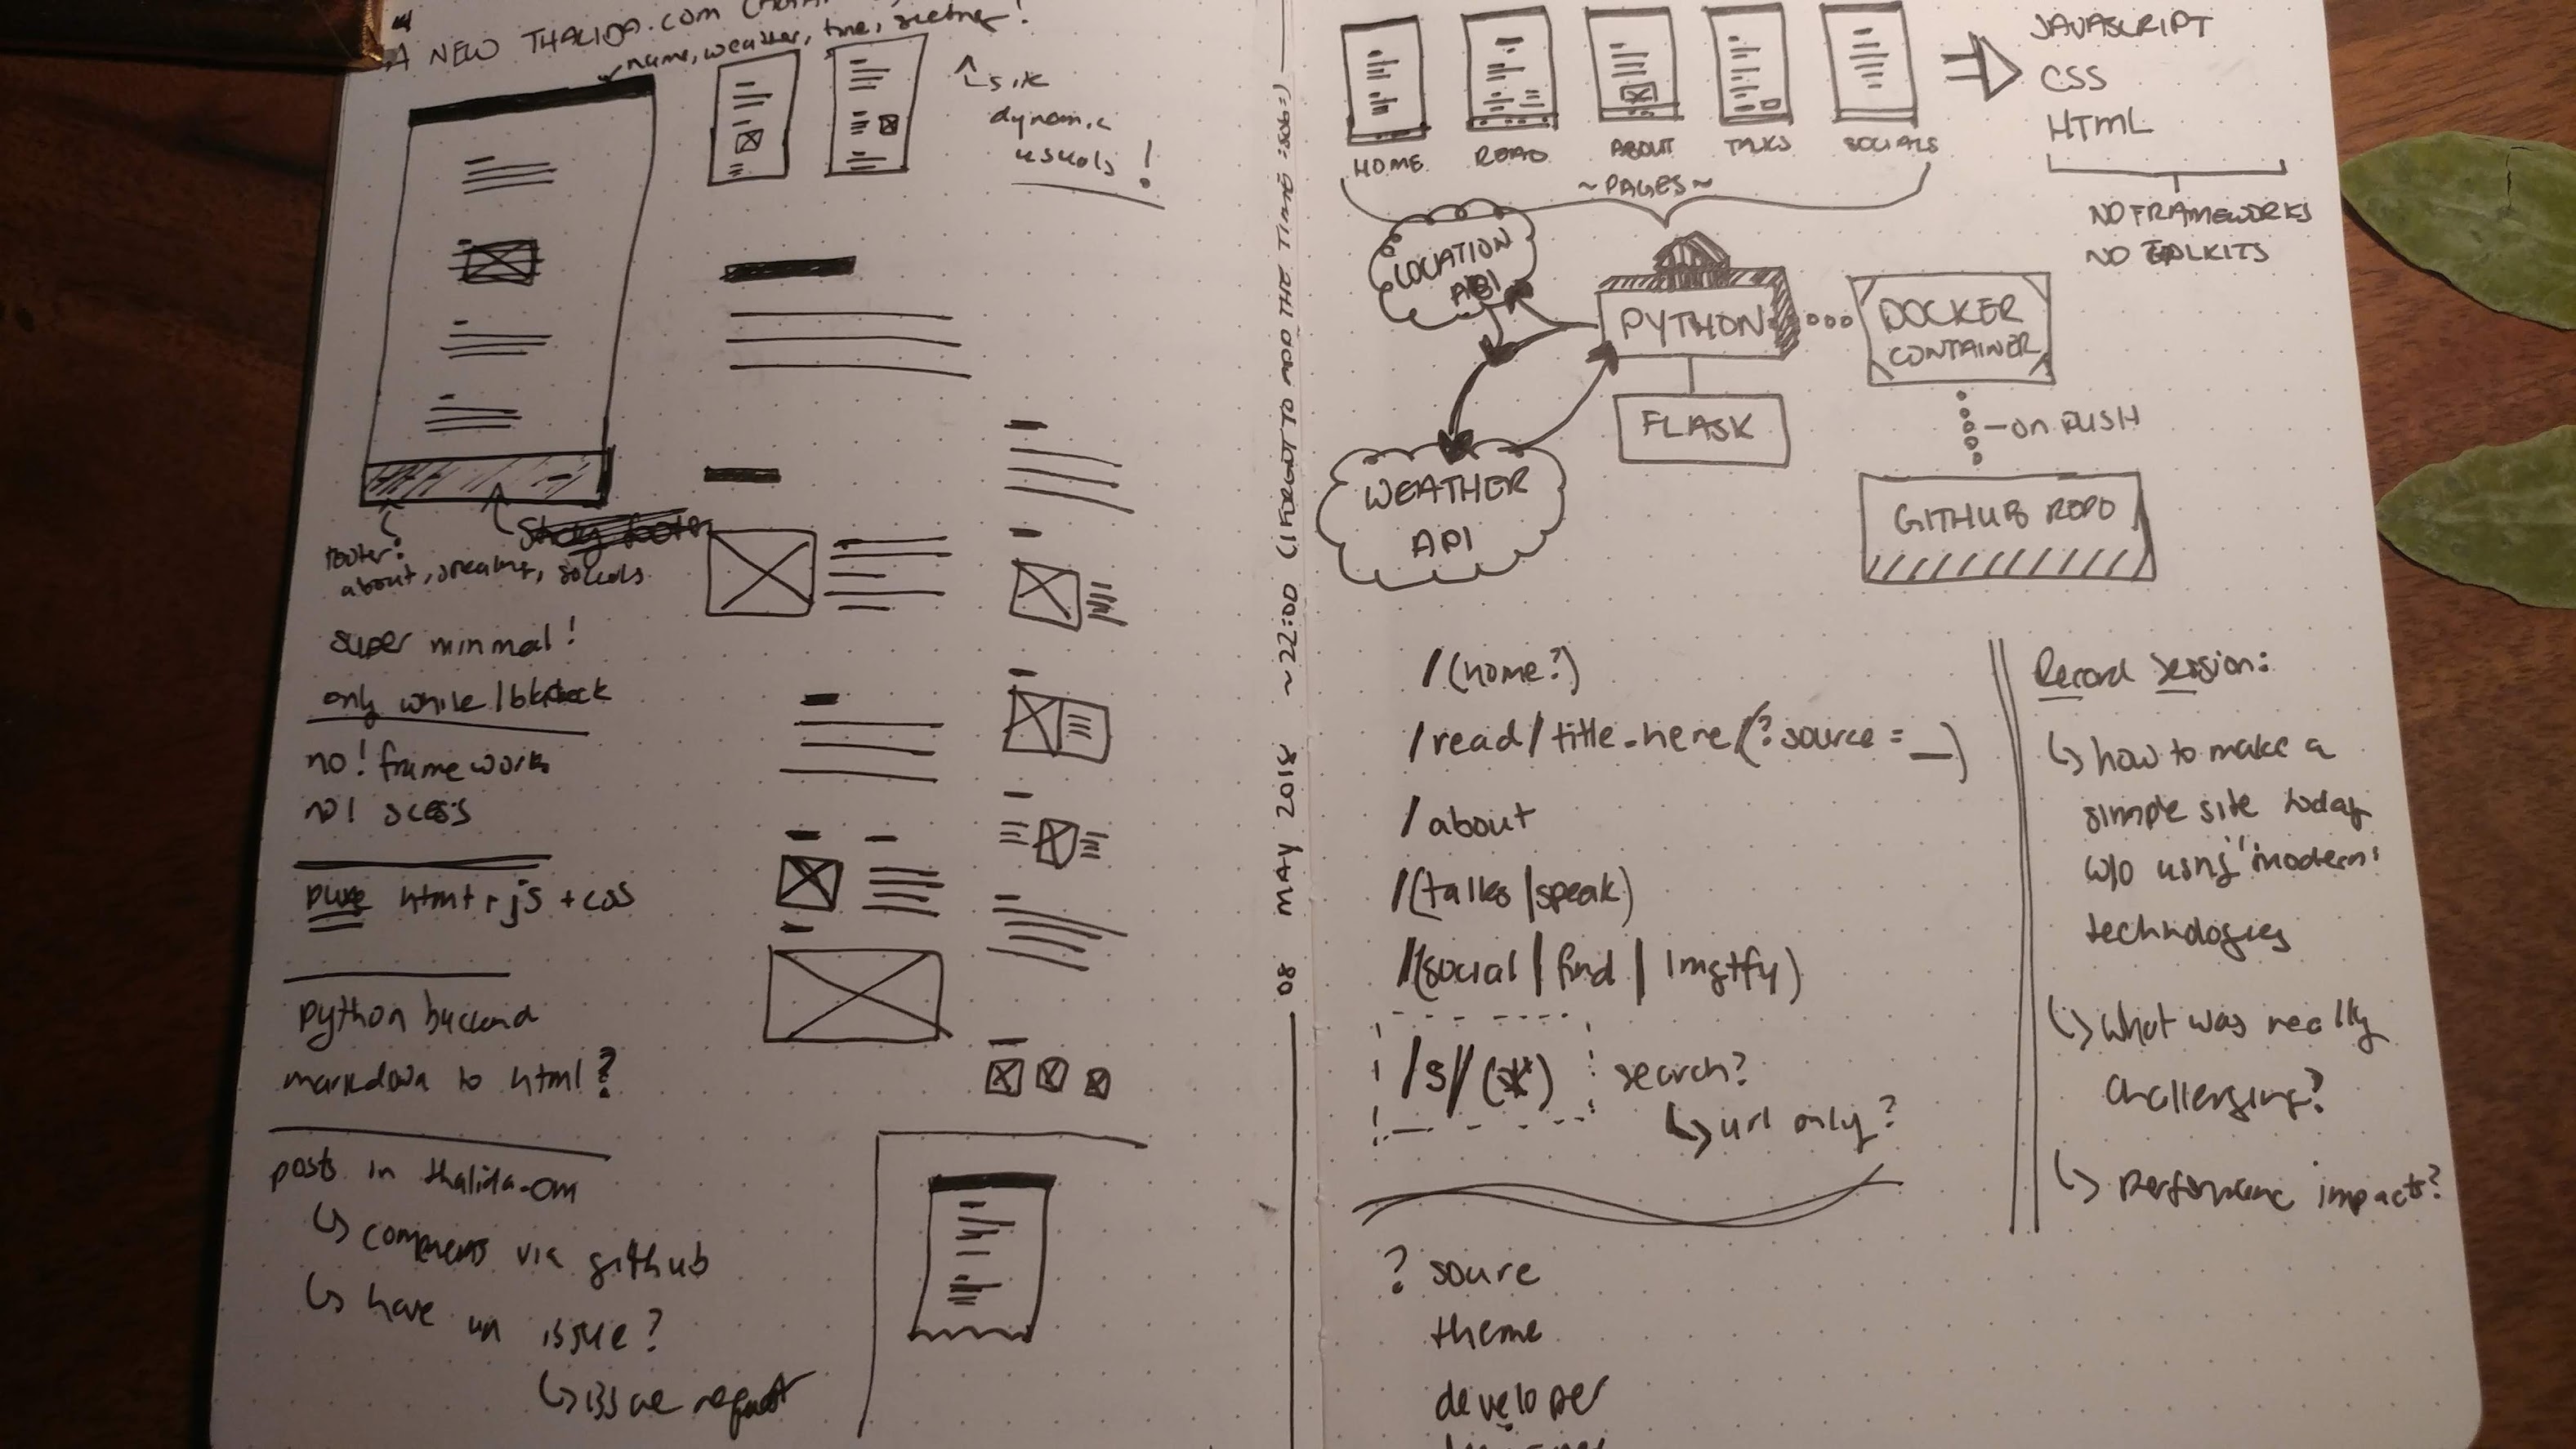 A NEW THALIDA.COM
name, weather, time,
site
dynamic
visuals!
footer?
about, speaking, socials
super minimal!
only white/black
no! framework
no! scess
pure html + js + css
python backend
markdown to html?
posts in thalida.com
comments via github
have an issue?
issue request
08 MAY 2018 ~22:00 (I FORGOT TO ADD THE TIME :sob:)
HOME
READ
ABOUT
TALKS
SOCIALS
~PAGES~
JAVASCRIPT
CSS
HTML
NO FRAMEWORKS
NO TOOLKITS
LOCATION
API
PYTHON
DOCKER
CONTAINER
FLASK
on PUSH
WEATHER
API
GITHUB REPO
/(home?)
/read/title-here/(?source=__)
/about
/(talks|speak)
/(social|find|lmgtfy)
/s//(*)
search?
url only?
? soure
theme
developer
Record session:
how to make a
simple site today
w/o using "modern"
technologies
what was really
challenging?
performance impacts?